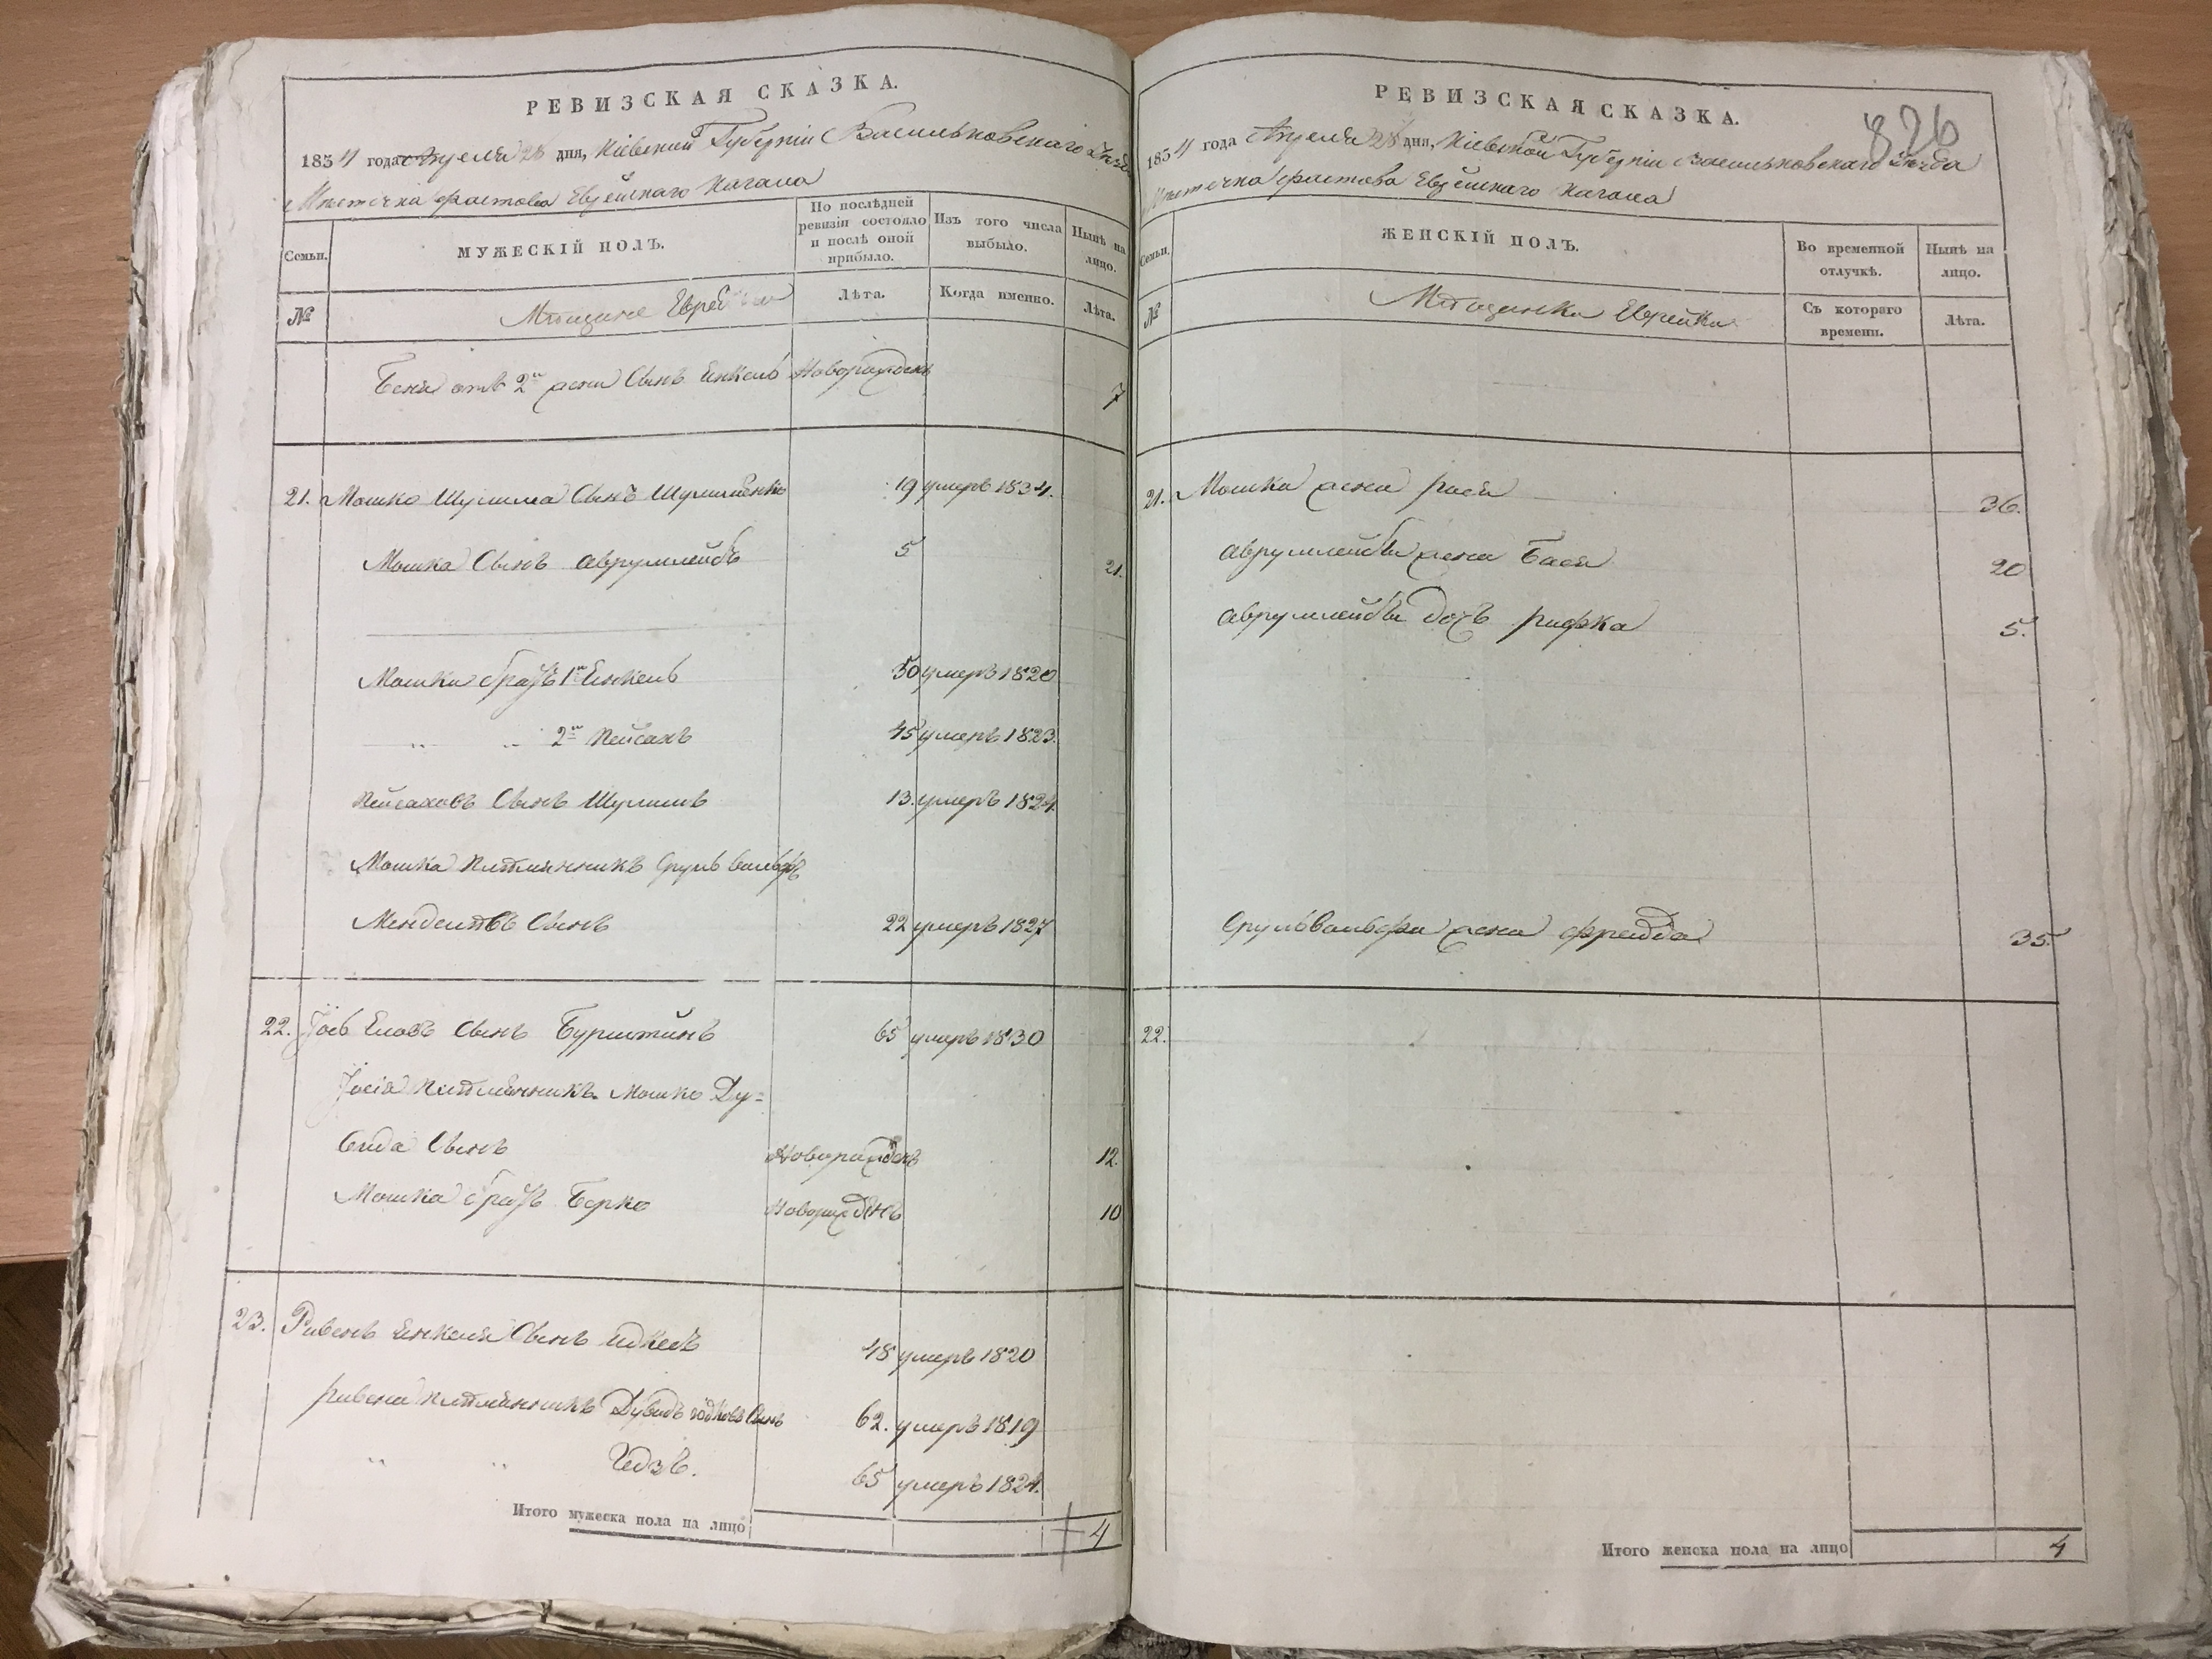 РЕВИЗСКАЯ СКАЗКА.
1834 года Апреля 28 дня, Кіевской Губерніи Васильковскаго
Мѣстечка Фастова Еврейскаго Кагала
Семьи.
МУЖЕСКІЙ ПОЛЪ.
По послѣдней ревизіи состояло и послѣ оной прибыло.
Изъ того числа выбыло.
Нынѣ на лицо.
№
Мѣщане Евреи
Лѣта.
Когда именно.
Лѣта.
Беня отъ 2й жены Сынъ Енкель Новорожденъ 7
21. Мошко Шулима Сынъ 19 умеръ 1834.
Мошка Сынъ Аврумлейбъ 5 21.
Мошка братъ 1й Енкель 50 умеръ 1820
" " 2й Пейсахъ 45 умеръ 1823.
Пейсаховъ Сынъ Шулимъ 13. умеръ 1824.
Мошка племянникъ Сруль Вольфъ
Менделевъ Сынъ 22 умеръ 1827
22. Іось Сынъ Бурштинъ 65 умеръ 1830
Іосія племянникъ Мошко Ду=
вида Сынъ Новорожденъ 12.
Мошка братъ Берко Новорожденъ 10
23. Рывенъ Енкеля Сынъ 48 умеръ 1820
Рывена племянникъ Дувидъ Сынъ 62. умеръ 1819
" " 65 умеръ 1824.
Итого мужеска пола на лицо 4
РЕВИЗСКАЯ СКАЗКА.
826
1834 года Апреля 28 дня, Кіевской Губерніи Васильковскаго Уѣзда
Мѣстечка Фастова Еврейскаго Кагала
Семьи.
ЖЕНСКІЙ ПОЛЪ.
Во временной отлучкѣ.
Нынѣ на лицо.
№
Мѣщанки Еврейки
Съ котораго времени.
Лѣта.
21. Мошка жена Рася 36.
Аврумлейбы жена Бася 20
Аврумлейбы дочь Рифка 5.
Срульвольфа жена Фрейда 35.
22.
Итого женска пола на лицо 4